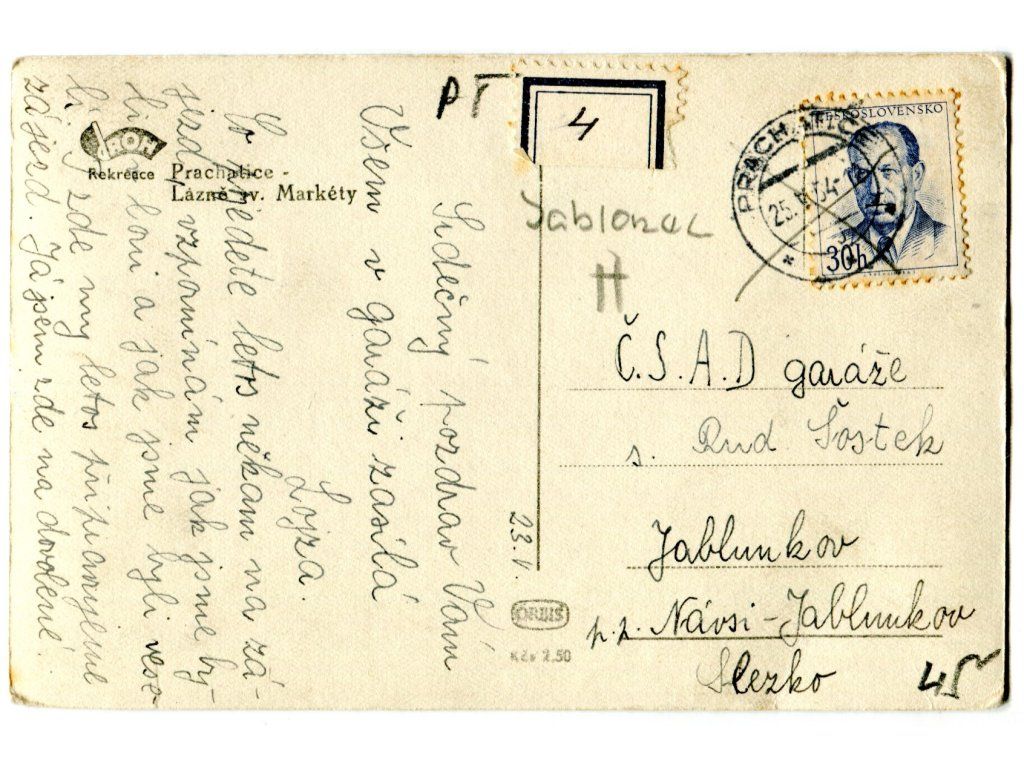 ROH
Rekreace Prachatice -
Lázně sv. Markéty
23.V.
Srdečný pozdrav Vám
Všem v garáži zasílá
Lojza.
Co jedete letos někam na zá-
jezd, vzpomínám jak jsme by-
li loni a jak jsme byli vese
li zde my letos
zájezd. Já jsem zde na dovolené.
PT
4
Jablonec
H
PRACHATICE
25. 54-
ČESKOSLOVENSKO
30h
Č.S.A.D garáže
s. Rud. Šostek
Jablunkov
p.p. Návsi-Jablunkov
Slezko
45
ORBIS
Kčs 2.50